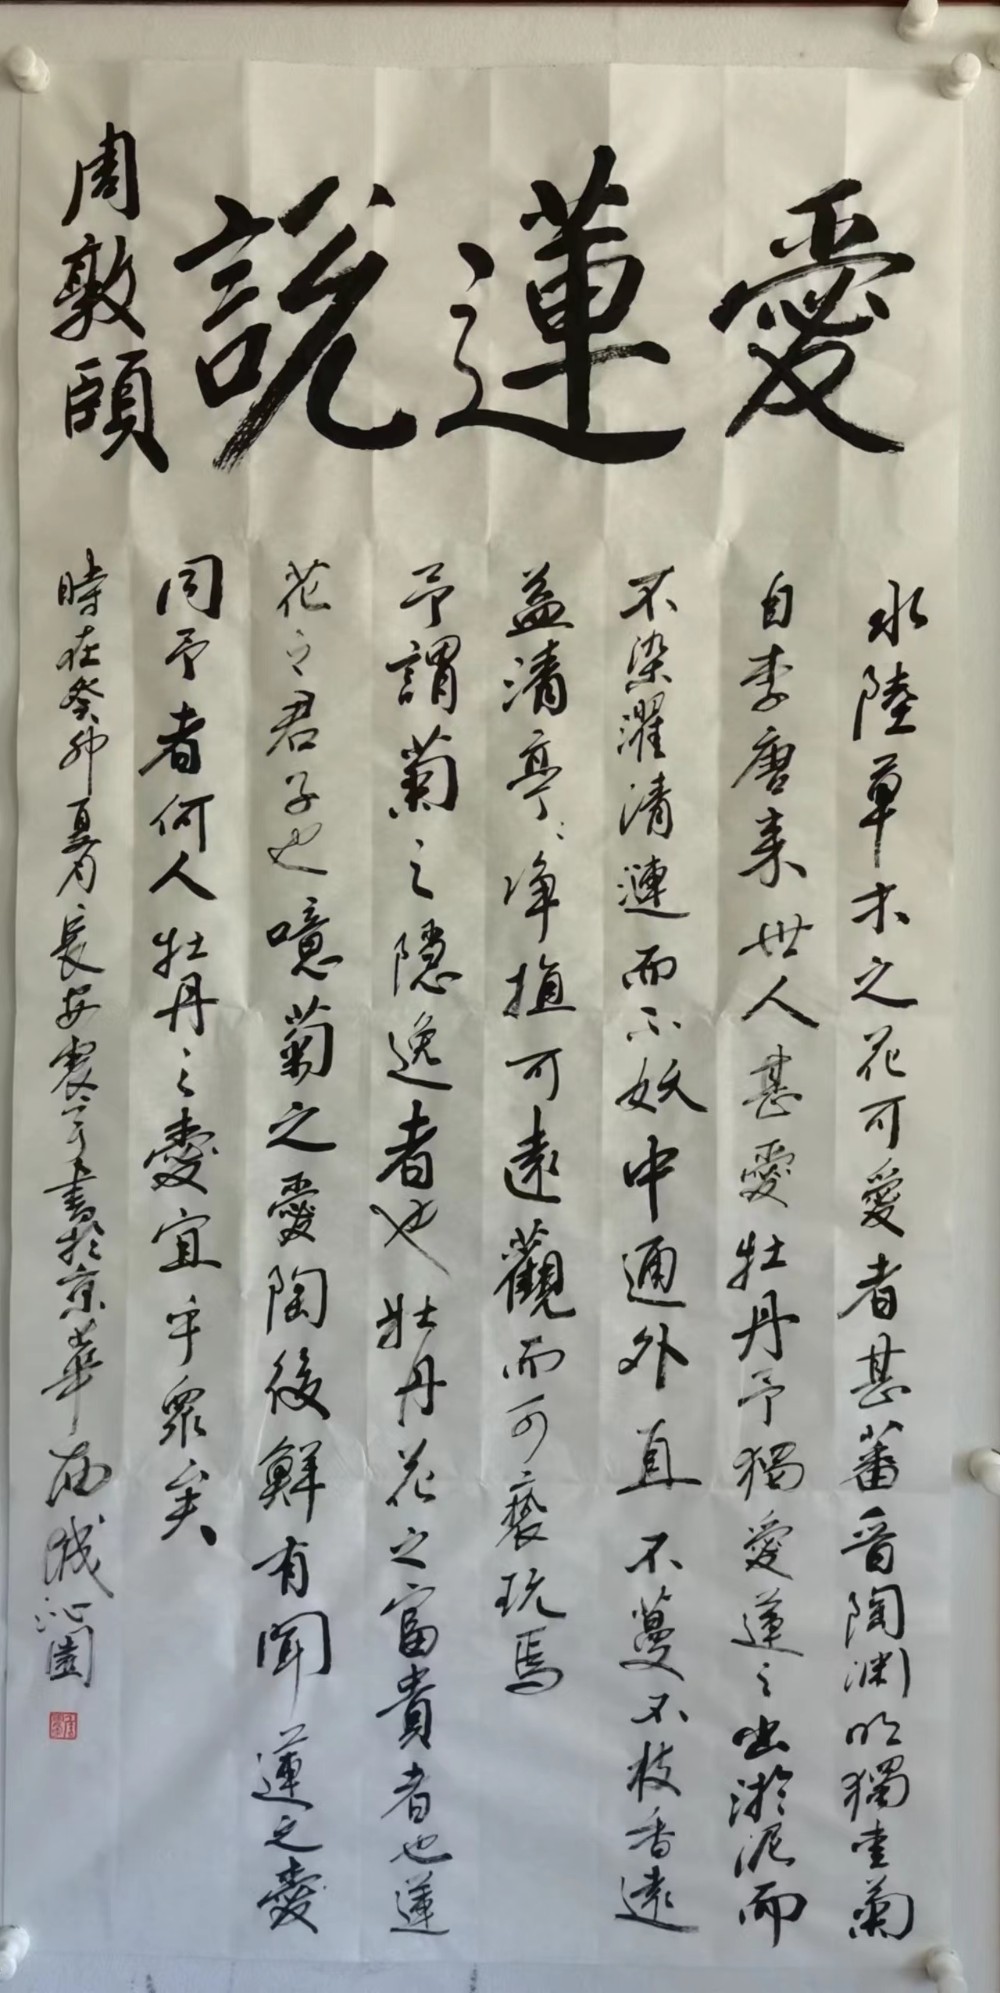 愛蓮說
周敦頤
水陸草木之花可愛者甚蕃晋陶渊明獨愛菊
自李唐来世人甚愛牡丹予獨愛蓮之出淤泥而
不染濯清漣而不妖中通外直不蔓不枝香遠
益清亭〻净植可遠觀而可褻玩焉
予謂菊之隱逸者也牡丹花之富貴者也蓮
花之君子也噫菊之愛陶後鮮有聞蓮之愛
同予者何人牡丹之愛宜乎眾矣
時在癸卯夏月長安震宇書於京華南城沁園